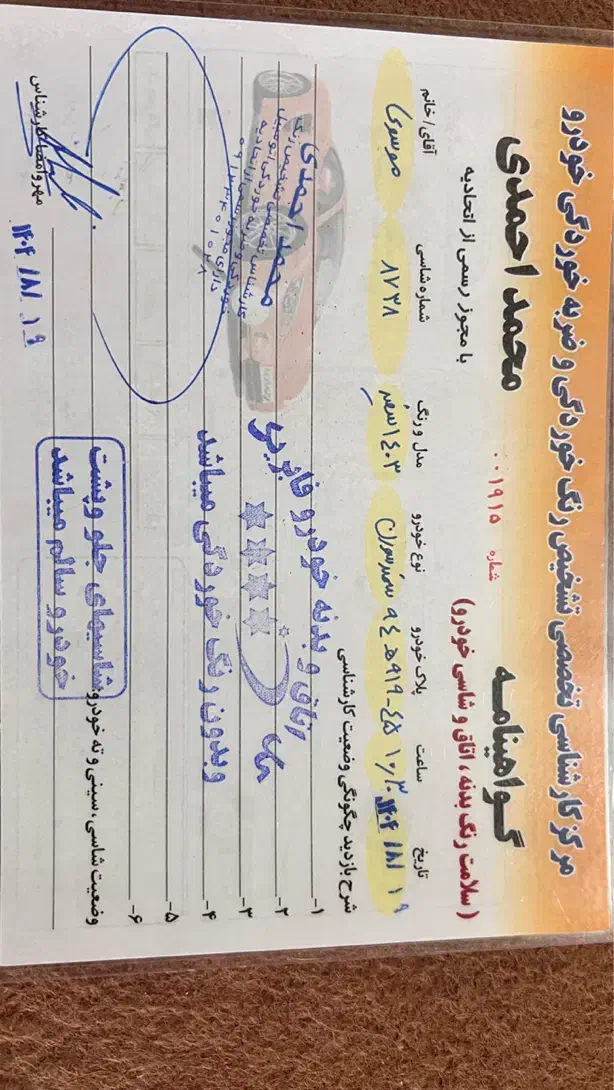 مرکز کارشناسی تخصصی تشخیص رنگ خوردگی و ضربه خوردگی خودرو
گواهینامه
محمد احمدی
(سلامت رنگ بدنه، اتاق و شاسی خودرو)
شماره ۰۰۱۹۱۵
با مجوز رسمی از اتحادیه
تاریخ ساعت پلاک خودرو نوع خودرو مدل و رنگ شماره شاسی آقای / خانم
۱۴۰۴ /۸/ ۱۹ ۱۰/۲۰ ۹۴ ه ۹۱۹-۴۵ سمند سورن ۱۴۰۳ سفید ۸۷۳۸ موسوی
شرح بازدید چگونگی وضعیت کارشناسی
۱- اتاق و بدنه خودرو فابریک
۲-
۳-
۴- و بدون رنگ خوردگی میباشد
محمد احمدی
۵-
۶-
وضعیت شاسی، سینی و ته خودرو: شاسیهای جلو و پشت
خودرو سالم میباشد
مهر و امضا کارشناس
۱۴۰۴ /۸/ ۱۹